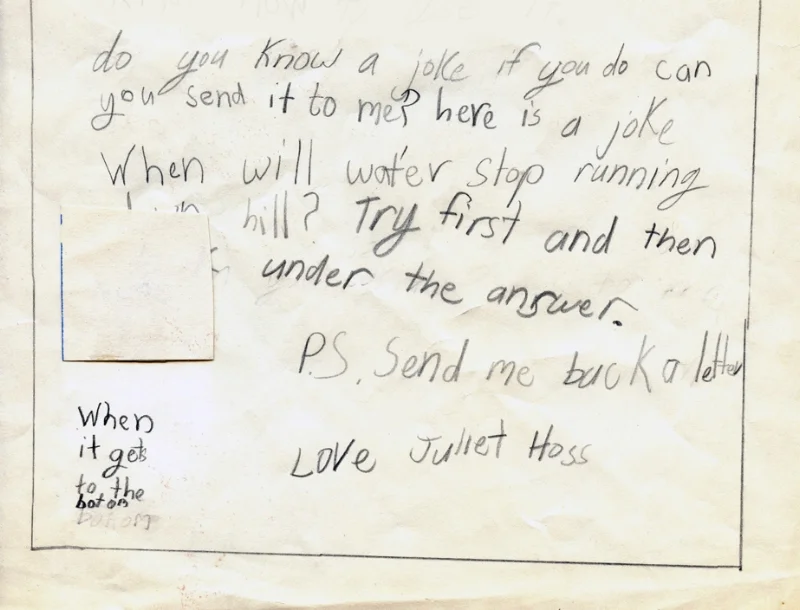 do you know a joke if you do can
you send it to me? here is a joke
When will water stop running
hill? Try first and then
under the answer.
P.S. Send me back a letter
Love Juliet Hoss
When
it gets
to the
botom
botom